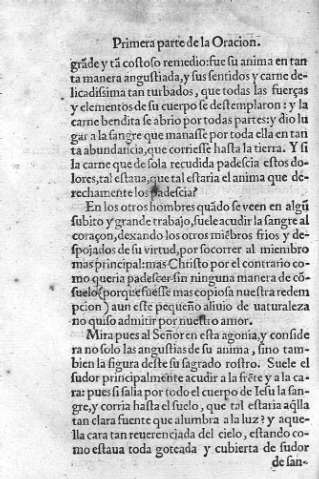 Primera parte de la Oracion.
grāde y tā costoso remedio: fue su anima en tan
ta manera angustiada, y sus sentidos y carne de-
licadissima tan turbados, que todas las fuerças
y elementos de su cuerpo se destemplaron: y la
carne bendita se abrio por todas partes: y dio lu
gar a la sangre que manasse por toda ella en tan
ta abundancia, que corriesse hasta la tierra. Y si
la carne que de sola recudida padescia estos do-
lores, tal estaua, que tal estaria el anima que de-
rechamente los padescia?
En los otros hombres quādo se veen en algū
subito y grande trabajo, suele acudir la sangre al
coraçon, dexando los otros miēbros frios y des-
pojados de su virtud, por socorrer al miembro
mas principal: mas Christo por el contrario co-
mo queria padescer sin ninguna manera de cō-
suelo (porque fuesse mas copiosa nuestra redem
pcion) aun este pequeño aliuio de uaturaleza
no quiso admitir por nuestro amor.
Mira pues al Señor en esta agonia, y conside
ra no solo las angustias de su anima, sino tam-
bien la figura deste su sagrado rostro. Suele el
sudor principalmente acudir a la frēte y a la ca-
ra: pues si salia por todo el cuerpo de Iesu la san-
gre, y corria hasta el suelo, que tal estaria aq̄lla
tan clara fuente que alumbra a la luz? y aque-
lla cara tan reuerenciada del cielo, estando co-
mo estaua toda goteada y cubierta de sudor
de san-